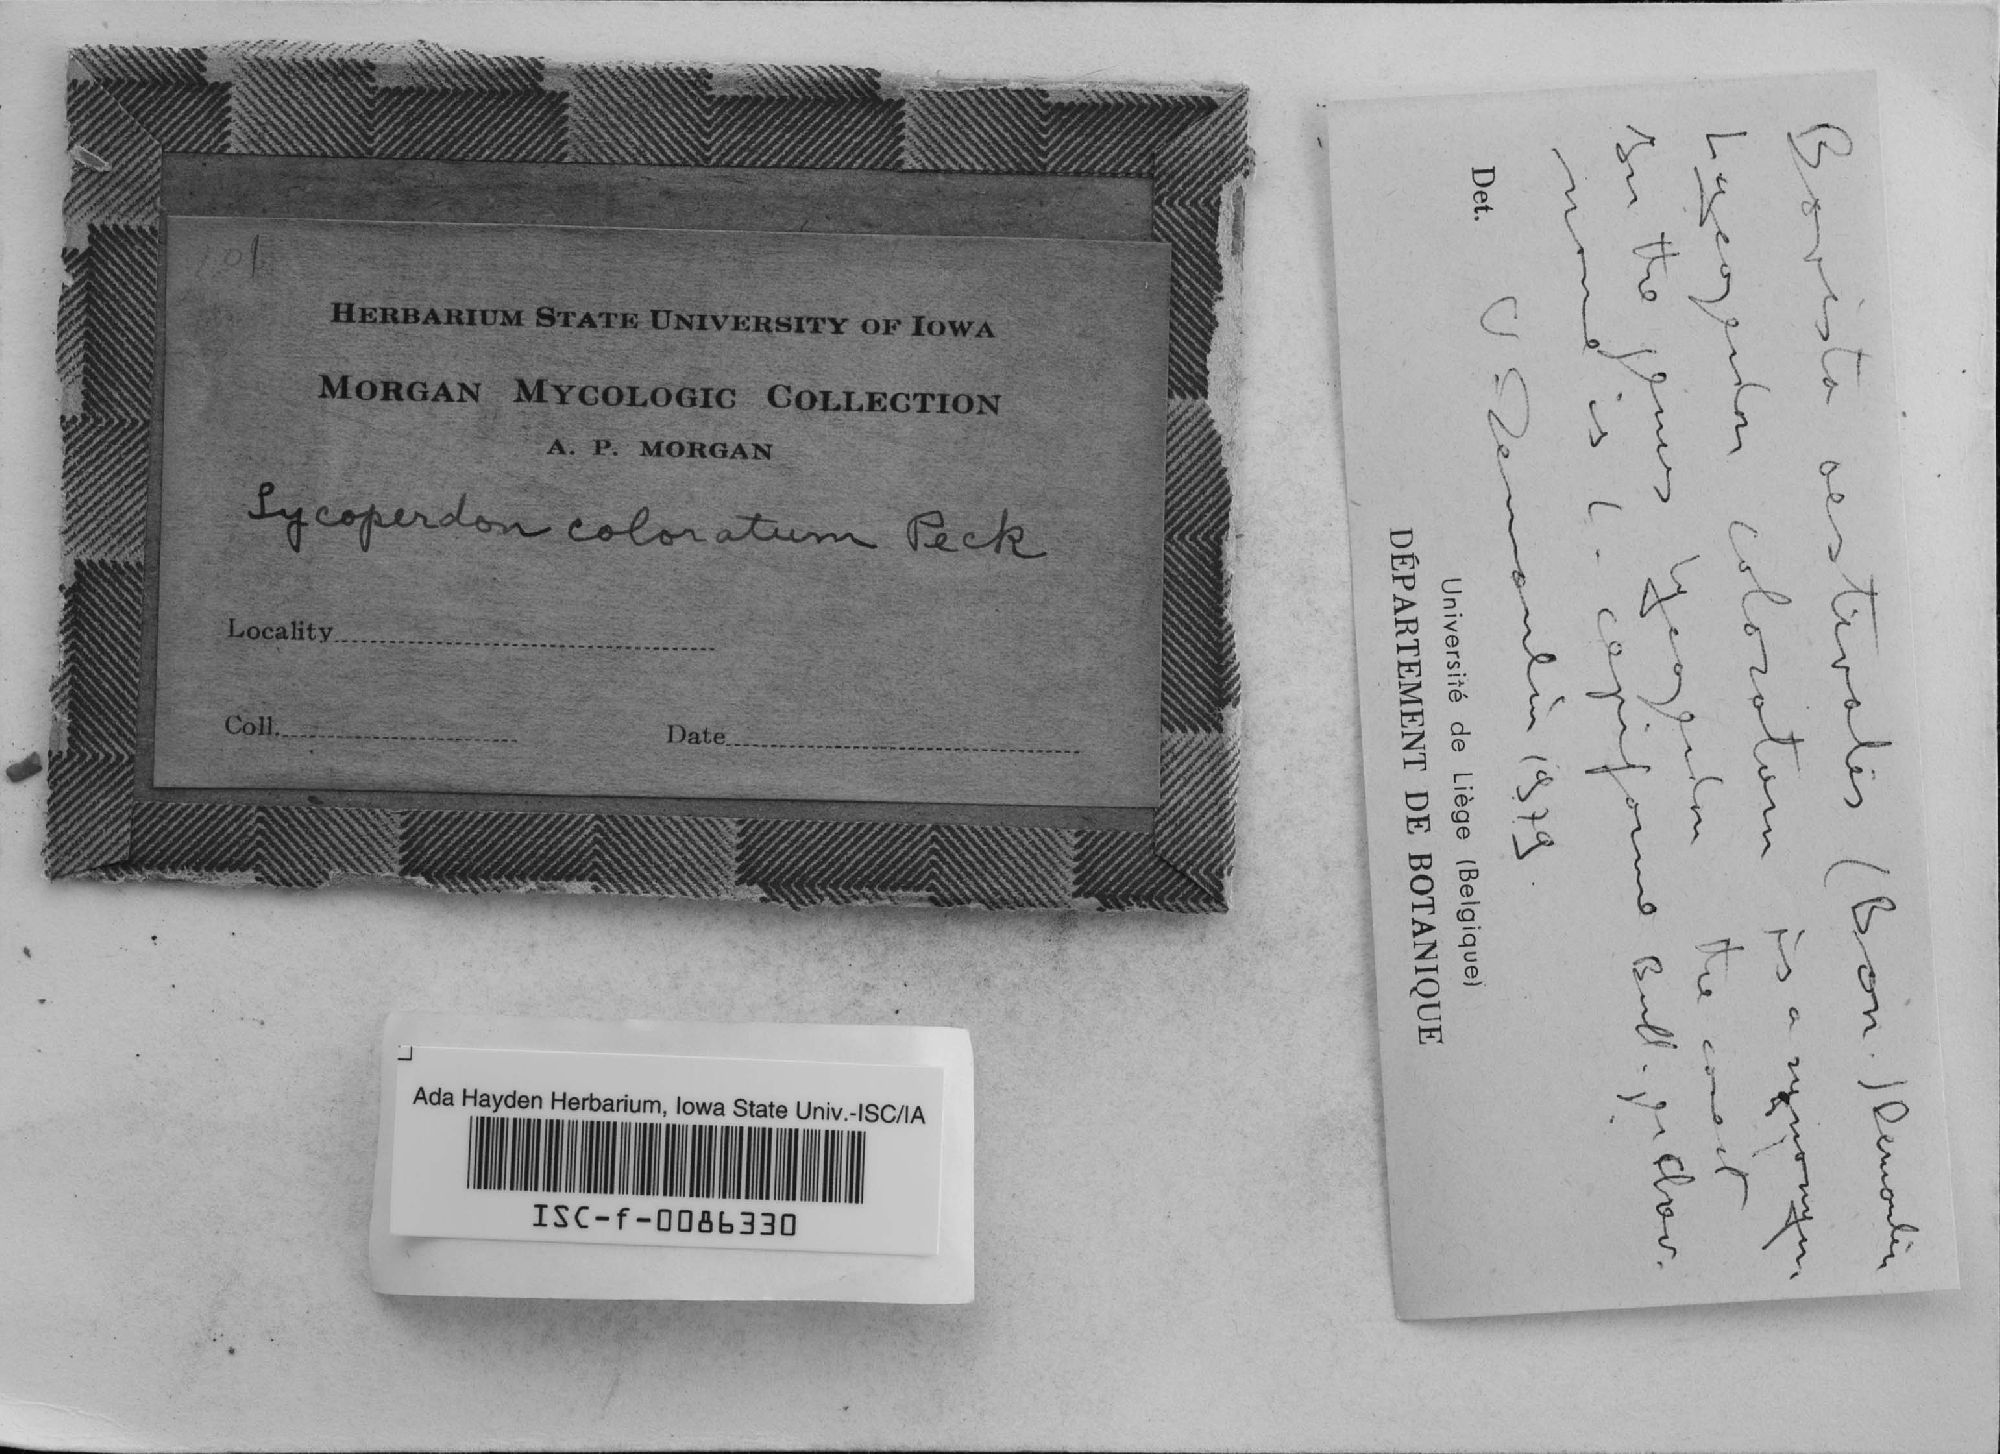 101
HERBARIUM STATE UNIVERSITY OF IOWA
MORGAN MYCOLOGIC COLLECTION
A. P. MORGAN
Lycoperdon coloratum Peck
Locality
Coll.
Date
Ada Hayden Herbarium, Iowa State Univ.-ISC/IA
ISC-f-0086330
Bovista aestivalis (Bon.) Demoulin
Lycoperdon coloratum is a synonym.
In the genus Lycoperdon the correct
name is L. cepiforme Bull.
Det. V Demoulin 1979
Université de Liège (Belgique)
DÉPARTEMENT DE BOTANIQUE